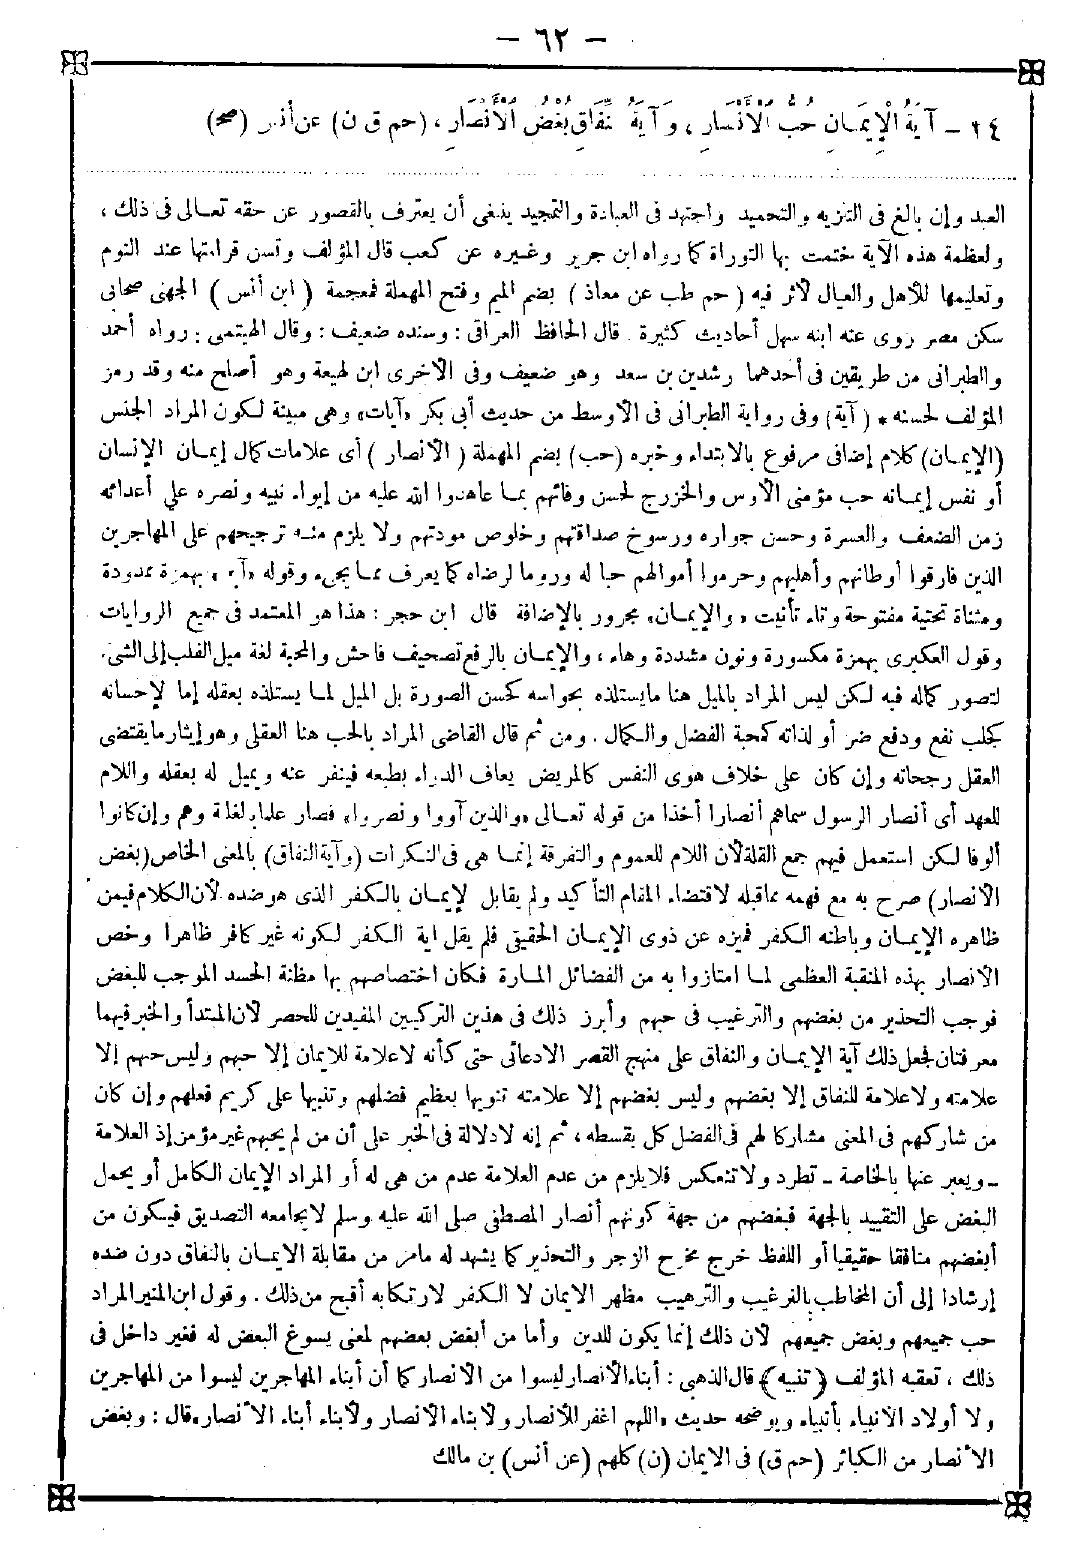 – ٦٢ –
٢٤ – آيَةُ الْإِيمَانِ حُبُّ الْأَنْصَارِ ، وَآيَةُ النِّفَاقِ بُغْضُ الْأَنْصَارِ ، (حم ق ن) عن أنس (صح)
العبد وإن بالغ فى التنزيه والتحميد واجتهد فى العبادة والتمجيد ينبغى أن يعترف بالقصور عن حقه تعالى فى ذلك ،
ولعظمة هذه الآية ختمت بها التوراة كما رواه ابن جرير وغيره عن كعب قال المؤلف وتسن قراءتها عند النوم
وتعليمها للأهل والعيال لأثر فيه ( حم طب عن معاذ ) بضم الميم وفتح المهملة فمعجمة ( ابن أنس ) الجهنى صحابى
سكن مصر روى عنه ابنه سهل أحاديث كثيرة . قال الحافظ العراقى : وسنده ضعيف : وقال الهيتمى : رواه أحمد
والطبرانى من طريقين فى أحدهما رشدين بن سعد وهو ضعيف وفى الأخرى ابن لهيعة وهو أصلح منه وقد رمز
المؤلف لحسنه * ( آية ) وفى رواية الطبرانى فى الأوسط من حديث أبى بكر «آيات» وهى مبينة لكون المراد الجنس
(الإيمان) كلام إضافى مرفوع بالابتداء وخبره (حب) بضم المهملة ( الأنصار ) أى علامات كمال إيمان الإنسان
أو نفس إيمانه حب مؤمنى الأوس والخزرج لحسن وفائهم بما عاهدوا الله عليه من إيواء نبيه ونصره على أعدائه
زمن الضعف والعسرة وحسن جواره ورسوخ صداقتهم وخلوص مودتهم ولا يلزم منه ترجيحهم على المهاجرين
الذين فارقوا أوطانهم وأهليهم وحرموا أموالهم حبا له وروما لرضاه كما يعرف مما يجىء وقوله «آية» بهمزة ممدودة
ومثناة تحتية مفتوحة وتاء تأنيث « والإيمان» مجرور بالإضافة قال ابن حجر : هذا هو المعتمد فى جميع الروايات
وقول العكبرى بهمزة مكسورة ونون مشددة وهاء ، والإيمان بالرفع تصحيف فاحش والمحبة لغة ميل القلب إلى الشىء
لتصور كماله فيه لكن ليس المراد بالميل هنا ما يستلذه بحواسه كحسن الصورة بل الميل لما يستلذه بعقله إما لإحسانه
كجلب نفع ودفع ضر أو لذاته كمحبة الفضل والكمال . ومن ثم قال القاضى المراد بالحب هنا العقلى وهو إيثار ما يقتضى
العقل رجحانه وإن كان على خلاف هوى النفس كالمريض يعاف الدواء بطبعه فينفر عنه ويميل له بعقله واللام
للعهد أى أنصار الرسول سماهم أنصارا أخذا من قوله تعالى «والذين آووا ونصروا» فصار علما بالغلبة وهم وإن كانوا
ألوفا لكن استعمل فيهم جمع القلة لأن اللام للعموم والتفرقة إنما هى فى النكرات (وآية النفاق) بالمعنى الخاص (بغض
الأنصار) صرح به مع فهمه مما قبله لاقتضاء المقام التأكيد ولم يقابل الإيمان بالكفر الذى هو ضده لأن الكلام فيمن
ظاهره الإيمان وباطنه الكفر فميزه عن ذوى الإيمان الحقيقى فلم يقل آية الكفر لكونه غير كافر ظاهرا وخص
الأنصار بهذه المنقبة العظمى لما امتازوا به من الفضائل المارة فكان اختصاصهم بها مظنة الحسد الموجب للبغض
فوجب التحذير من بغضهم والترغيب فى حبهم وأبرز ذلك فى هذين التركيبين المفيدين للحصر لأن المبتدأ والخبر فيهما
معرفتان فجعل ذلك آية الإيمان والنفاق على منهج القصر الادعائى حتى كأنه لا علامة للايمان إلا حبهم وليس حبهم إلا
علامته ولا علامة للنفاق إلا بغضهم وليس بغضهم إلا علامته تنويها بعظيم فضلهم وتنبيها على كريم فعلهم وإن كان
من شاركهم فى المعنى مشاركا لهم فى الفضل كل بقسطه ، ثم إنه لا دلالة فى الخبر على أن من لم يحبهم غير مؤمن إذ العلامة
– ويعبر عنها بالخاصة – تطرد ولا تنعكس فلا يلزم من عدم العلامة عدم من هى له أو المراد الإيمان الكامل أو يحمل
البغض على التقييد بالجهة فبغضهم من جهة كونهم أنصار المصطفى صلى الله عليه وسلم لا يجامعه التصديق فيكون من
أبغضهم منافقا حقيقيا أو اللفظ خرج مخرج الزجر والتحذير كما يشهد له مامر من مقابلة الايمان بالنفاق دون ضده
إرشادا إلى أن المخاطب بالترغيب والترهيب مظهر الايمان لا الكفر لارتكابه أقبح من ذلك . وقول ابن المنير المراد
حب جميعهم وبغض جميعهم لأن ذلك إنما يكون للدين وأما من أبغض بعضهم لمعنى يسوغ البغض له فغير داخل فى
ذلك ، تعقبه المؤلف ( تنبيه ) قال الذهبى : أبناء الأنصار ليسوا من الأنصار كما أن أبناء المهاجرين ليسوا من المهاجرين
ولا أولاد الأنبياء بأنبياء ويوضحه حديث «اللهم اغفر للأنصار ولأبناء الأنصار ولأبناء أبناء الأنصار» قال : وبغض
الأنصار من الكبائر (حم ق) فى الايمان (ن) كلهم (عن أنس) بن مالك